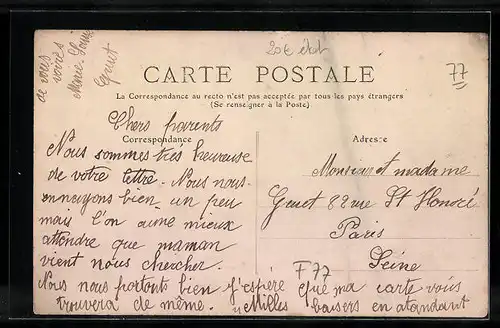 de vous
voires
Marie-Louise
Genet
20€ état
77
CARTE POSTALE
La Correspondance au recto n'est pas acceptée par tous les pays étrangers
(Se renseigner à la Poste)
Correspondance
Adresse
Chers parents
Nous sommes très heureuse
de votre lettre. Nous nous
ennuyons bien un peu
mais l'on aime mieux
attendre que maman
vient nous chercher.
Nous nous portons bien J'espère que ma carte vous
trouvera de même. Milles baisers en attendant
Monsieur et madame
Genet 82 rue St Honoré
Paris
Seine
F77